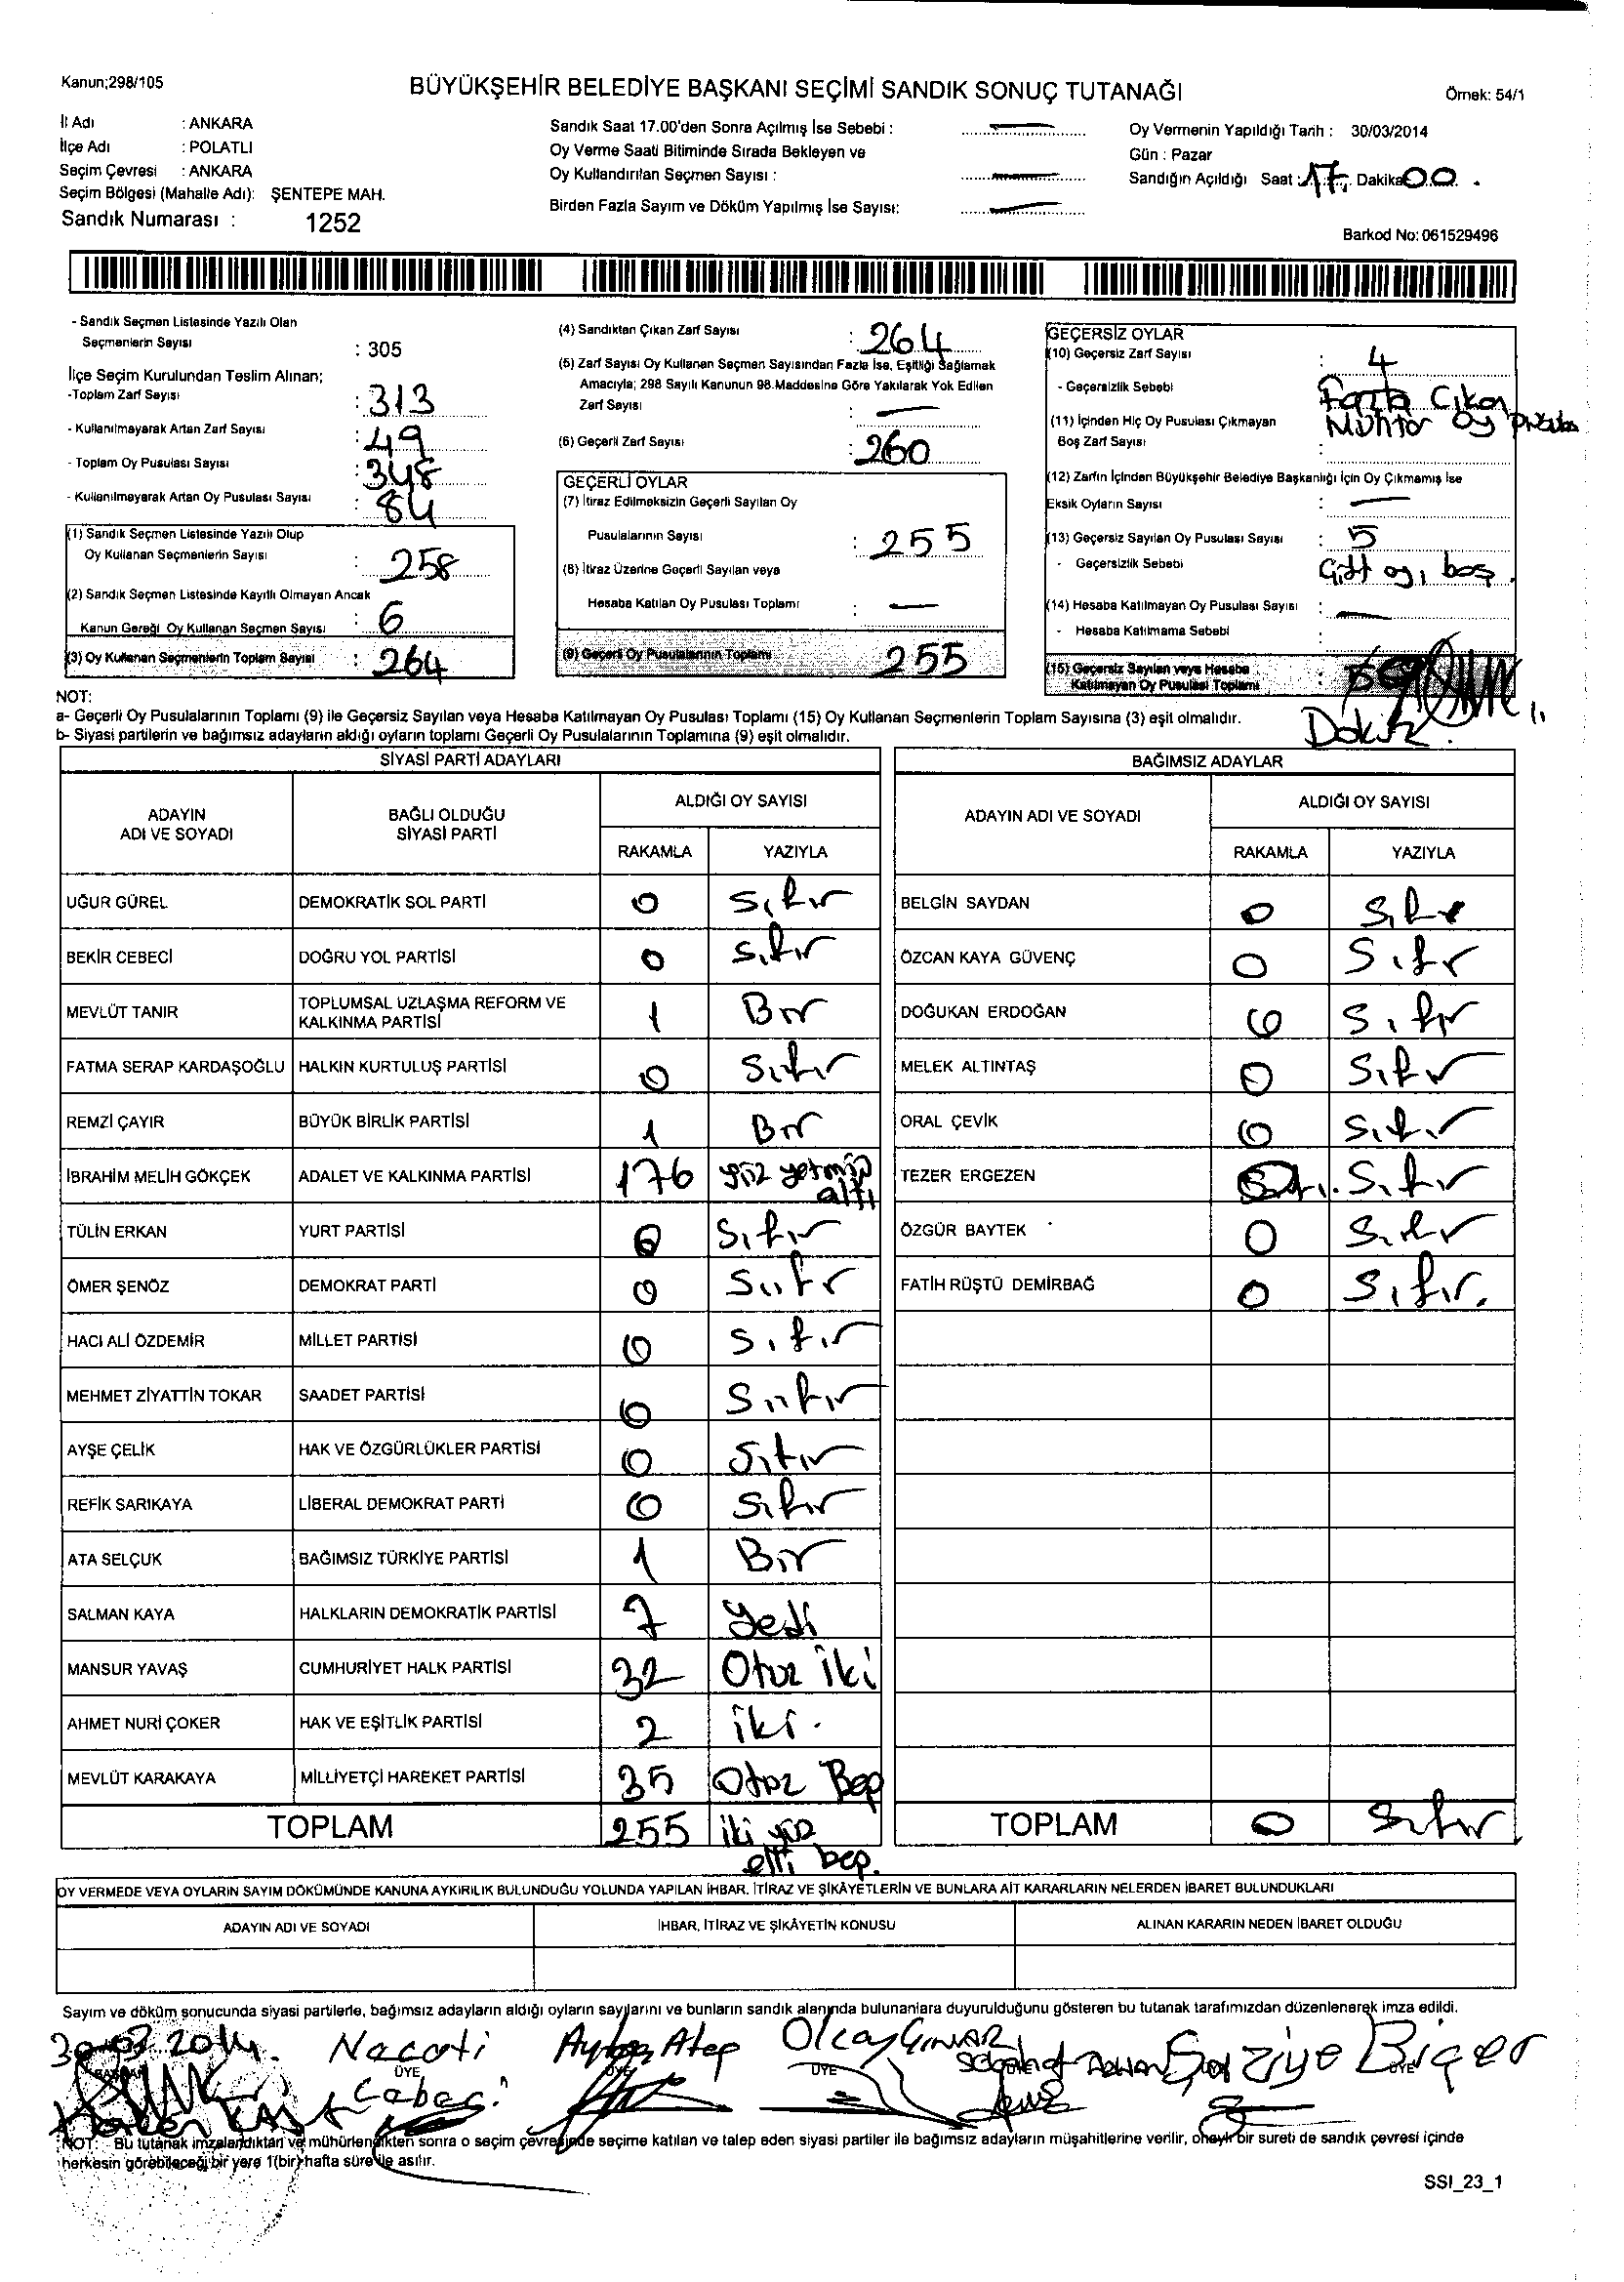 Kanun;298/105
BÜYÜKŞEHİR BELEDİYE BAŞKANI SEÇİMİ SANDIK SONUÇ TUTANAĞI
Örnek: 54/1
İl Adı : ANKARA
İlçe Adı : POLATLI
Seçim Çevresi : ANKARA
Seçim Bölgesi (Mahalle Adı): ŞENTEPE MAH.
Sandık Numarası : 1252
Sandık Saat 17.00'den Sonra Açılmış İse Sebebi : —
Oy Verme Saati Bitiminde Sırada Bekleyen ve
Oy Kullandırılan Seçmen Sayısı : —
Birden Fazla Sayım ve Döküm Yapılmış İse Sayısı: —
Oy Vermenin Yapıldığı Tarih : 30/03/2014
Gün : Pazar
Sandığın Açıldığı Saat : 17 Dakika 00
Barkod No: 061529496
- Sandık Seçmen Listesinde Yazılı Olan
Seçmenlerin Sayısı : 305
İlçe Seçim Kurulundan Teslim Alınan;
-Toplam Zarf Sayısı : 313
- Kullanılmayarak Artan Zarf Sayısı : 49
- Toplam Oy Pusulası Sayısı : 348
- Kullanılmayarak Artan Oy Pusulası Sayısı : 84
(1) Sandık Seçmen Listesinde Yazılı Olup
Oy Kullanan Seçmenlerin Sayısı : 258
(2) Sandık Seçmen Listesinde Kayıtlı Olmayan Ancak
Kanun Gereği Oy Kullanan Seçmen Sayısı : 6
(3) Oy Kullanan Seçmenlerin Toplam Sayısı : 264
(4) Sandıktan Çıkan Zarf Sayısı : 264
(5) Zarf Sayısı Oy Kullanan Seçmen Sayısından Fazla İse, Eşitliği Sağlamak
Amacıyla; 298 Sayılı Kanunun 98.Maddesine Göre Yakılarak Yok Edilen
Zarf Sayısı : —
(6) Geçerli Zarf Sayısı : 260
GEÇERLİ OYLAR
(7) İtiraz Edilmeksizin Geçerli Sayılan Oy
Pusulalarının Sayısı : 255
(8) İtiraz Üzerine Geçerli Sayılan veya
Hesaba Katılan Oy Pusulası Toplamı : —
(9) Geçerli Oy Pusulalarının Toplamı 255
GEÇERSİZ OYLAR
(10) Geçersiz Zarf Sayısı : 4
- Geçersizlik Sebebi : Fazla Çıkan
Muhtar Oy
(11) İçinden Hiç Oy Pusulası Çıkmayan
Boş Zarf Sayısı :
(12) Zarfın İçinden Büyükşehir Belediye Başkanlığı İçin Oy Çıkmamış İse
Eksik Oyların Sayısı : —
(13) Geçersiz Sayılan Oy Pusulası Sayısı : 5
- Geçersizlik Sebebi : Çift oy, boş.
(14) Hesaba Katılmayan Oy Pusulası Sayısı : —
- Hesaba Katılmama Sebebi :
(15) Geçersiz Sayılan veya Hesaba
Katılmayan Oy Pusulası Toplamı :
NOT:
a- Geçerli Oy Pusulalarının Toplamı (9) ile Geçersiz Sayılan veya Hesaba Katılmayan Oy Pusulası Toplamı (15) Oy Kullanan Seçmenlerin Toplam Sayısına (3) eşit olmalıdır.
b- Siyasi partilerin ve bağımsız adayların aldığı oyların toplamı Geçerli Oy Pusulalarının Toplamına (9) eşit olmalıdır.
SİYASİ PARTİ ADAYLARI
ADAYIN ADI VE SOYADI BAĞLI OLDUĞU SİYASİ PARTİ ALDIĞI OY SAYISI
RAKAMLA YAZIYLA
UĞUR GÜREL DEMOKRATİK SOL PARTİ 0 Sıfır
BEKİR CEBECİ DOĞRU YOL PARTİSİ 0 Sıfır
MEVLÜT TANIR TOPLUMSAL UZLAŞMA REFORM VE KALKINMA PARTİSİ 1 Bir
FATMA SERAP KARDAŞOĞLU HALKIN KURTULUŞ PARTİSİ 0 Sıfır
REMZİ ÇAYIR BÜYÜK BİRLİK PARTİSİ 1 Bir
İBRAHİM MELİH GÖKÇEK ADALET VE KALKINMA PARTİSİ 176 yüz yetmiş altı
TÜLİN ERKAN YURT PARTİSİ 0 Sıfır
ÖMER ŞENÖZ DEMOKRAT PARTİ 0 Sıfır
HACI ALİ ÖZDEMİR MİLLET PARTİSİ 0 Sıfır
MEHMET ZİYATTİN TOKAR SAADET PARTİSİ 0 Sıfır
AYŞE ÇELİK HAK VE ÖZGÜRLÜKLER PARTİSİ 0 Sıfır
REFİK SARIKAYA LİBERAL DEMOKRAT PARTİ 0 Sıfır
ATA SELÇUK BAĞIMSIZ TÜRKİYE PARTİSİ 1 Bir
SALMAN KAYA HALKLARIN DEMOKRATİK PARTİSİ 7 Yedi
MANSUR YAVAŞ CUMHURİYET HALK PARTİSİ 32 Otuz iki
AHMET NURİ ÇOKER HAK VE EŞİTLİK PARTİSİ 2 iki.
MEVLÜT KARAKAYA MİLLİYETÇİ HAREKET PARTİSİ 35 Otuz Beş
TOPLAM 255 iki yüz elli beş.
BAĞIMSIZ ADAYLAR
ADAYIN ADI VE SOYADI ALDIĞI OY SAYISI
RAKAMLA YAZIYLA
BELGİN SAYDAN 0 Sıfır
ÖZCAN KAYA GÜVENÇ 0 Sıfır
DOĞUKAN ERDOĞAN 0 Sıfır
MELEK ALTINTAŞ 0 Sıfır
ORAL ÇEVİK 0 Sıfır
TEZER ERGEZEN Sıfır
ÖZGÜR BAYTEK 0 Sıfır
FATİH RÜŞTÜ DEMİRBAĞ 0 Sıfır.
TOPLAM 0 Sıfır
OY VERMEDE VEYA OYLARIN SAYIM DÖKÜMÜNDE KANUNA AYKIRILIK BULUNDUĞU YOLUNDA YAPILAN İHBAR, İTİRAZ VE ŞİKÂYETLERİN VE BUNLARA AİT KARARLARIN NELERDEN İBARET BULUNDUKLARI
ADAYIN ADI VE SOYADI İHBAR, İTİRAZ VE ŞİKÂYETİN KONUSU ALINAN KARARIN NEDEN İBARET OLDUĞU
Sayım ve döküm sonucunda siyasi partilerle, bağımsız adayların aldığı oyların sayılarını ve bunların sandık alanında bulunanlara duyurulduğunu gösteren bu tutanak tarafımızdan düzenlenerek imza edildi.
30.03.2014. Necati Olcay Çınar Biçer
BAŞKAN ÜYE ÜYE ÜYE ÜYE
NOT: Bu tutanak imzalandıktan ve mühürlendikten sonra o seçim çevresinde seçime katılan ve talep eden siyasi partiler ile bağımsız adayların müşahitlerine verilir, onaylı bir sureti de sandık çevresi içinde
herkesin görebileceği bir yere 1(bir) hafta süre ile asılır.
SSI_23_1